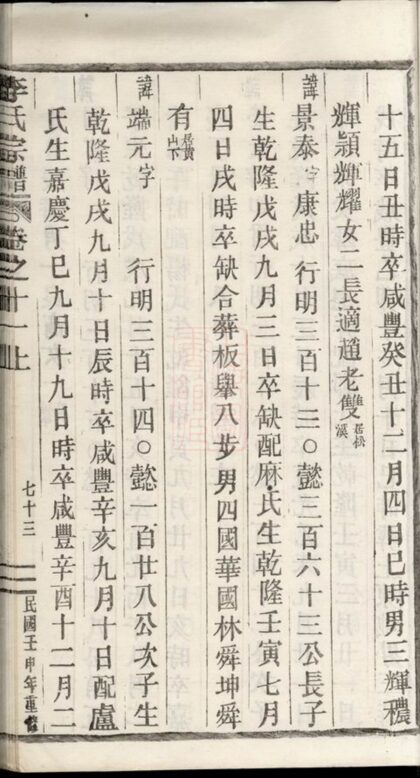 十五日丑時卒咸豐癸丑十二月四日巳時男三輝穠
輝頴輝耀女二長適趙老雙 居松溪
諱景泰字康忠 行明三百十三○懿三百六十三公長子
生乾隆戊戌九月三日卒缺配麻氏生乾隆壬寅七月
四日戌時卒缺合葬板舉八步男四國華國林舜坤舜
有 居黄山下
諱端元字 行明三百十四○懿一百廿八公次子生
乾隆戊戌九月十日辰時卒咸豐辛亥九月十日配盧
氏生嘉慶丁巳九月十九日時卒咸豐辛酉十二月二
李氏宗譜 卷之十一上 七十三 民國壬申年重修